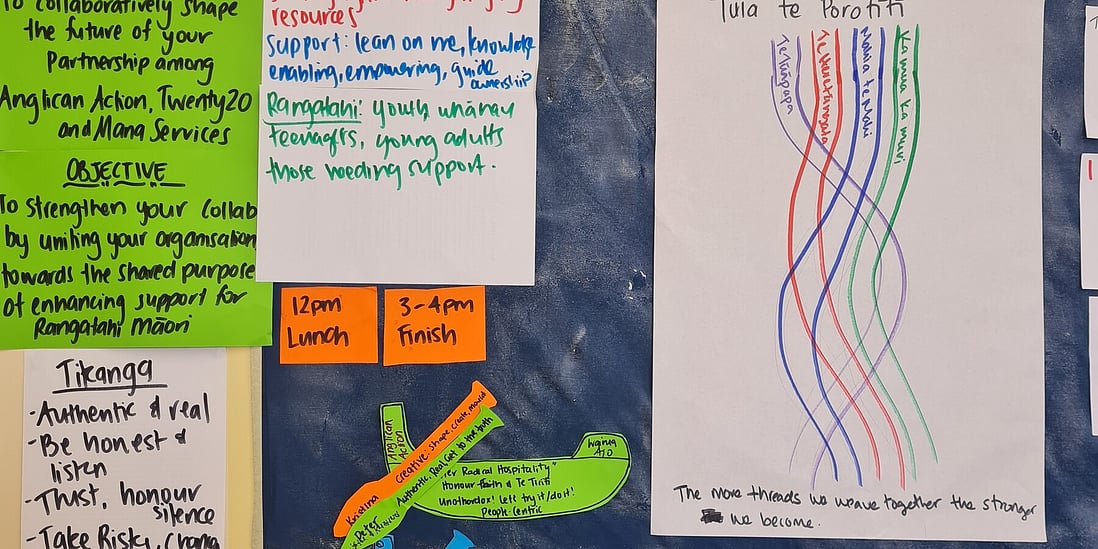 To collaboratively shape
the future of your
Partnership among
Anglican Action, Twenty20
and Mana Services
OBJECTIVE
To strengthen your Collab
by uniting your organisation
towards the shared purpose
of enhancing support for
Rangatahi Māori
Tikanga
- Authentic & real
- Be honest &
listen
- Trust, honour
silence
- Take Risks,
resources
Support: lean on me, knowledge
enabling, empowering, guide
ownership
Rangatahi: youth, whānau
teenagers, young adults
those needing support.
12pm
Lunch
3-4pm
Finish
Anglican
Action
Kristina Creative: shape, create, mould
Peter Authentic, Real Get to the truth
Radical Hospitality"
Honour faith & Te Tiriti
Unorthodox! Left try it/do it!
People-Centric
Tula te Porotiti
Te Tūāpapa
Mahia te Mahi
Ka mua Ka muri
The more threads we weave together the stronger
we become.